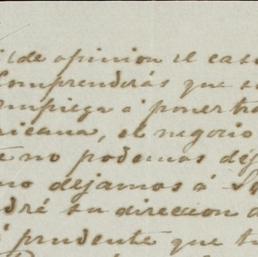 de opinion el caso
Comprenderás que s
empieza á poner tra
ricana, el negocio
no podemos dej
no dejamos á
dré su direccion
prudente que tu